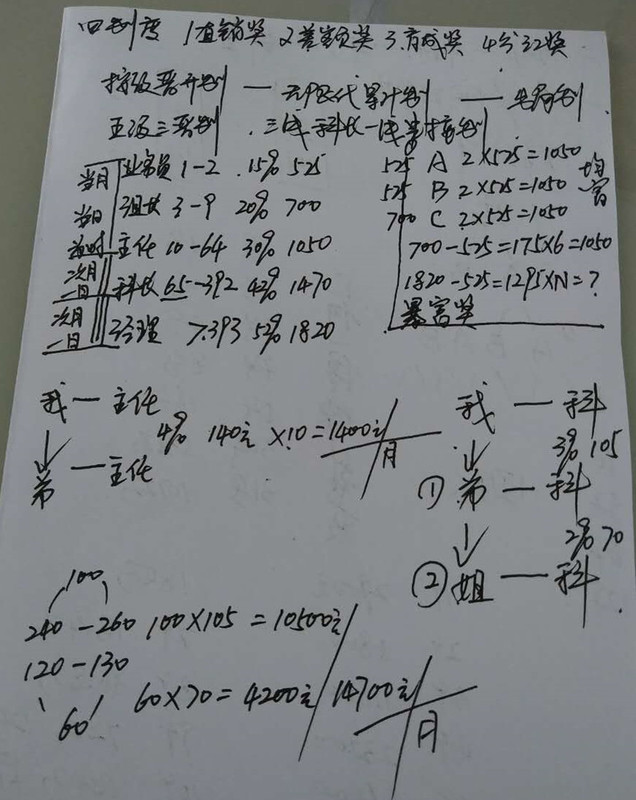 四制度 1直销奖 2差额奖 3.育成奖 4分红奖
按级晋升制 — 无限代累计制 — 出局制
五级三阶制 . 三线科长一线
当月 业务员 1-2 .15% 525
当日 组长 3-9 20% 700
当时 主任 10-64 30% 1050
次月一日 科长 65-392 42% 1470
次月一日 经理 7.393 52% 1820
525 A 2×525=1050
525 B 2×525=1050
700 C 2×525=1050
均富
700-525=175×6=1050
1820-525=1295×N=?
暴富奖
我 — 主任
4% 140元 ×10=1400元/月
弟 — 主任
我 — 科
3% 105
① 弟 — 科
2% 70
② 姐 — 科
100
240-260 100×105=10500元
120-130
60 60×70=4200元 14700元/月